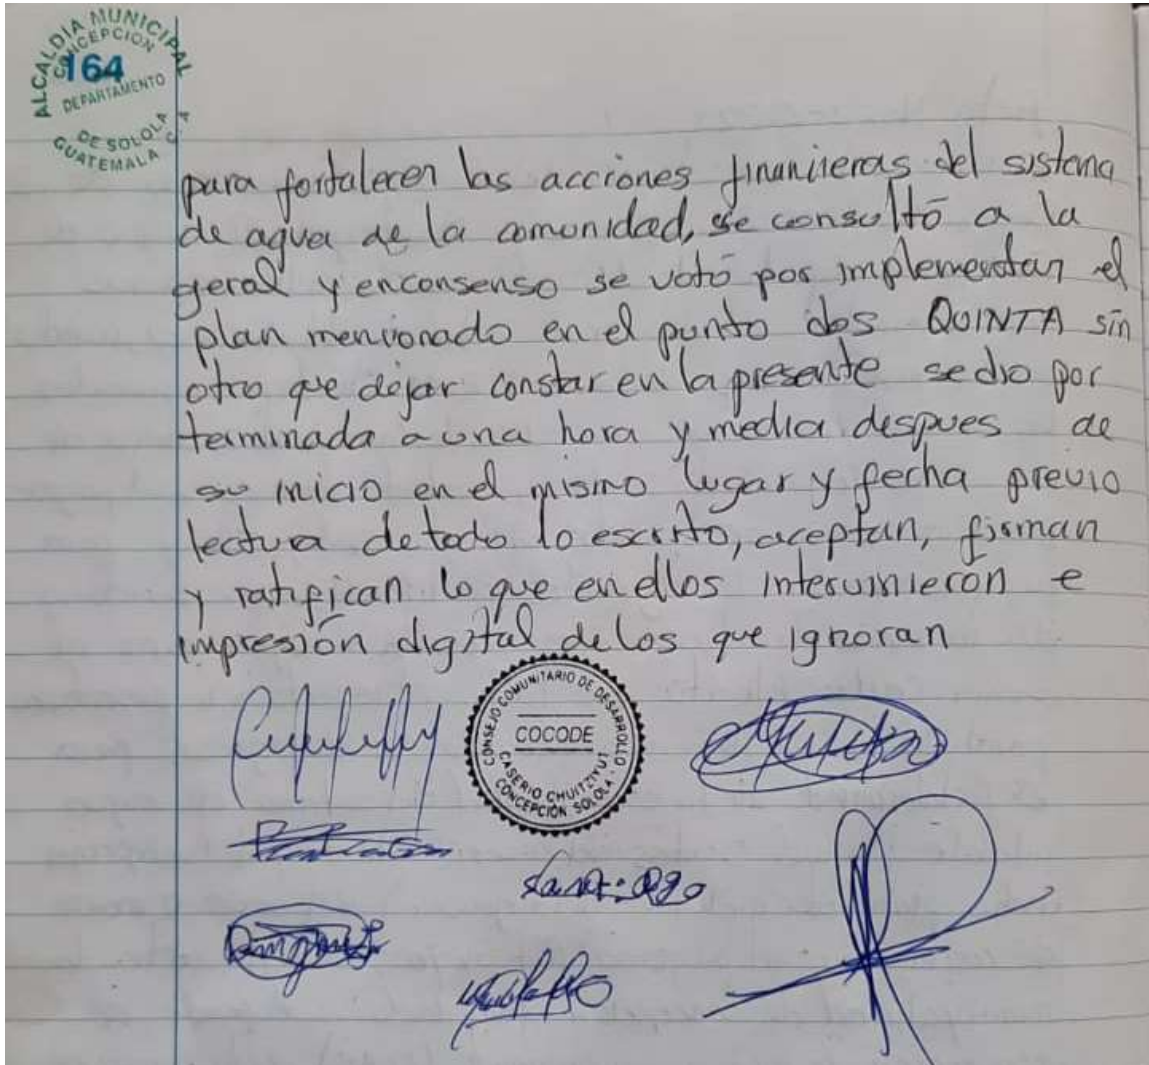 ALCALDIA MUNICIPAL
CONCEPCION
164
DEPARTAMENTO
DE SOLOLA
GUATEMALA C. A.
para fortalecer las acciones finaniieras del sistema
de agua de la comunidad, se consultó a la
geral y enconsenso se votó por implementar el
plan mencionado en el punto dos QUINTA sin
otro que dejar constar en la presente se dio por
terminada a una hora y media despues de
su inicio en el mismo lugar y fecha previo
lectura de todo lo escrito, aceptan, firman
y ratifican lo que en ellos intervinieron e
impresión digital de los que ignoran
CONSEJO COMUNITARIO DE DESARROLLO
COCODE
CASERIO CHUITZIYUT
CONCEPCIÓN SOLOLA